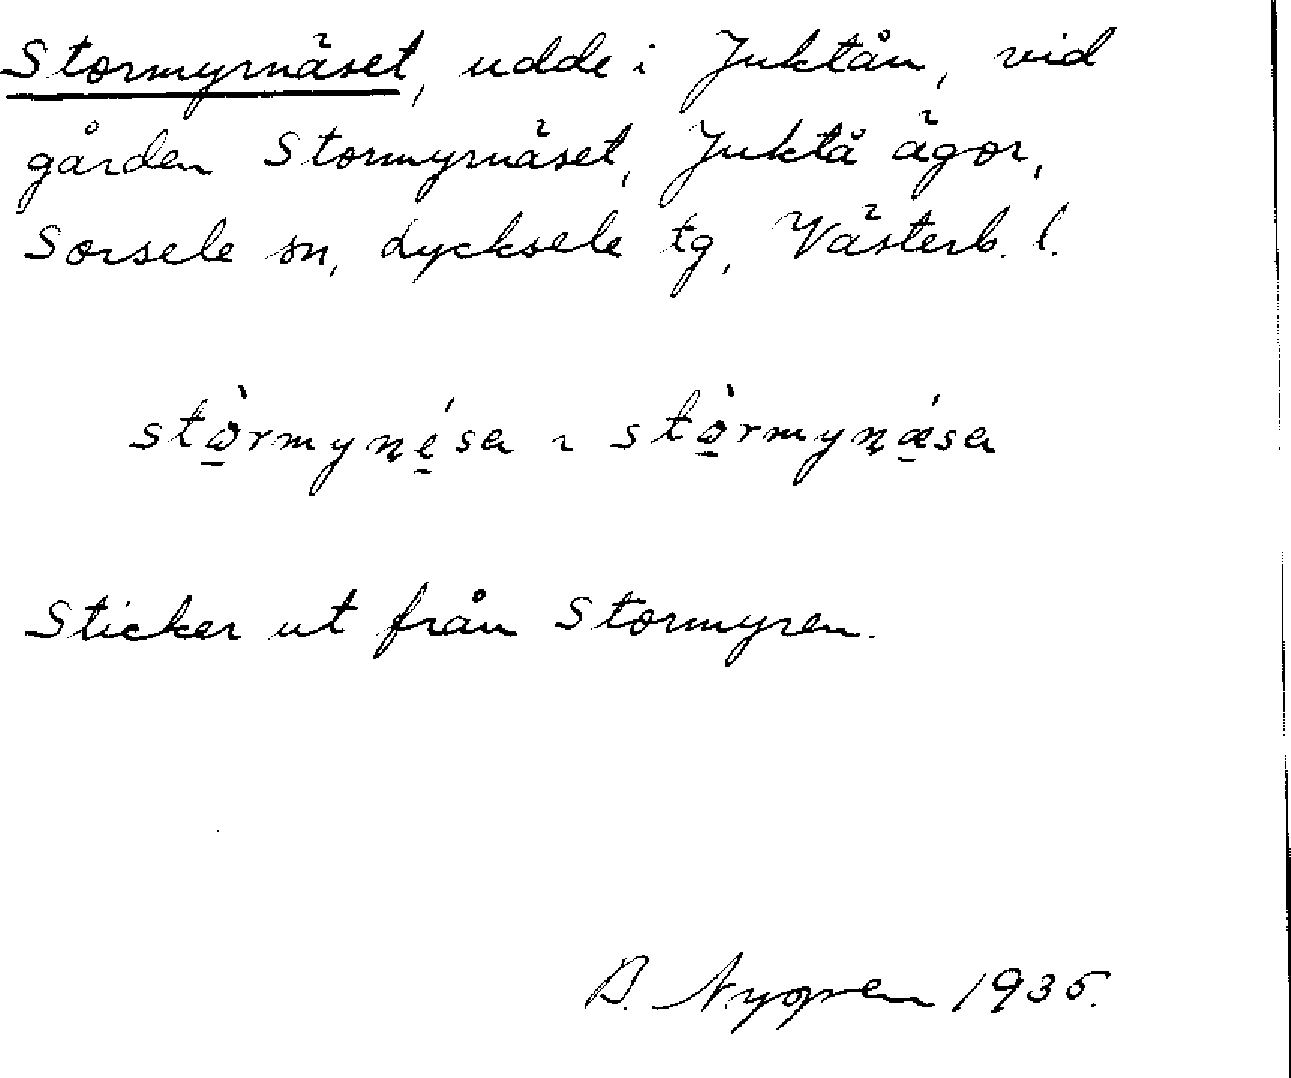 Stormyrnäset, udde i Juktån, vid
gården Stormyrnäset, Juktå ägor,
Sorsele sn, Lycksele tg, Västerb. l.
stò̱rmyṇé̱sa ~ stò̱rmyṇǽ̱sa
Sticker ut från Stormyren.
A. Nygren 1935.